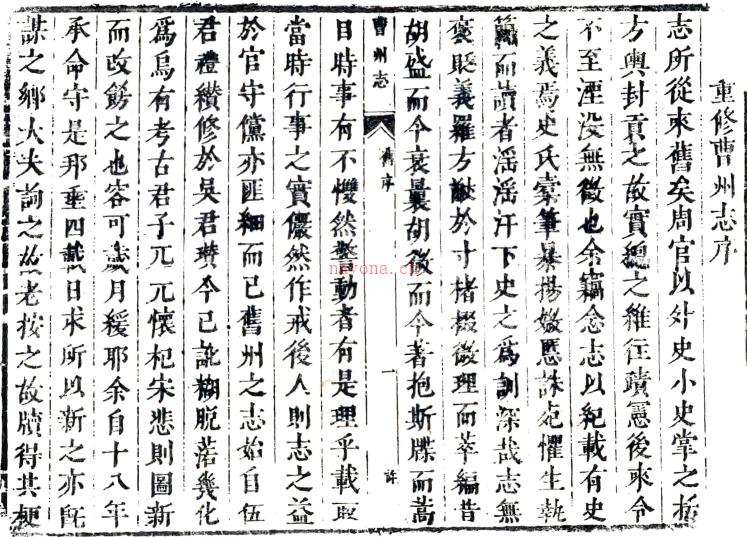 重修曹州志序
志所從來舊矣周官以外史小史掌之於
方輿封貢之故實總之維往蹟憲後來令
不至湮沒無徵也余竊念志以紀載有史
之義焉史氏橐筆暴揚媺慝誅死懼生執
簡而讀者滛滛汗下史之爲訓深哉志無
褒貶義羅方猷於寸楮掇微理而萃編昔
胡盛而今衰曩胡後而今著抱斯牒而蒿
曹州志
舊序
一
許
目時事有不戄然警動者有是理乎載取
當時行事之實儼然作戒後人則志之益
於官守儻亦匪細而已舊州之志始自伍
君禮纘修於吳君瓚今已訛糊脫落幾化
爲烏有考古君子兀兀懷杞宋悲則圖新
而改錺之也容可歲月緩耶余自十八年
承命守是邦垂四載日求所以新之亦旣
謀之鄉大夫詢之故老按之故牘得其梗
nayona.cn